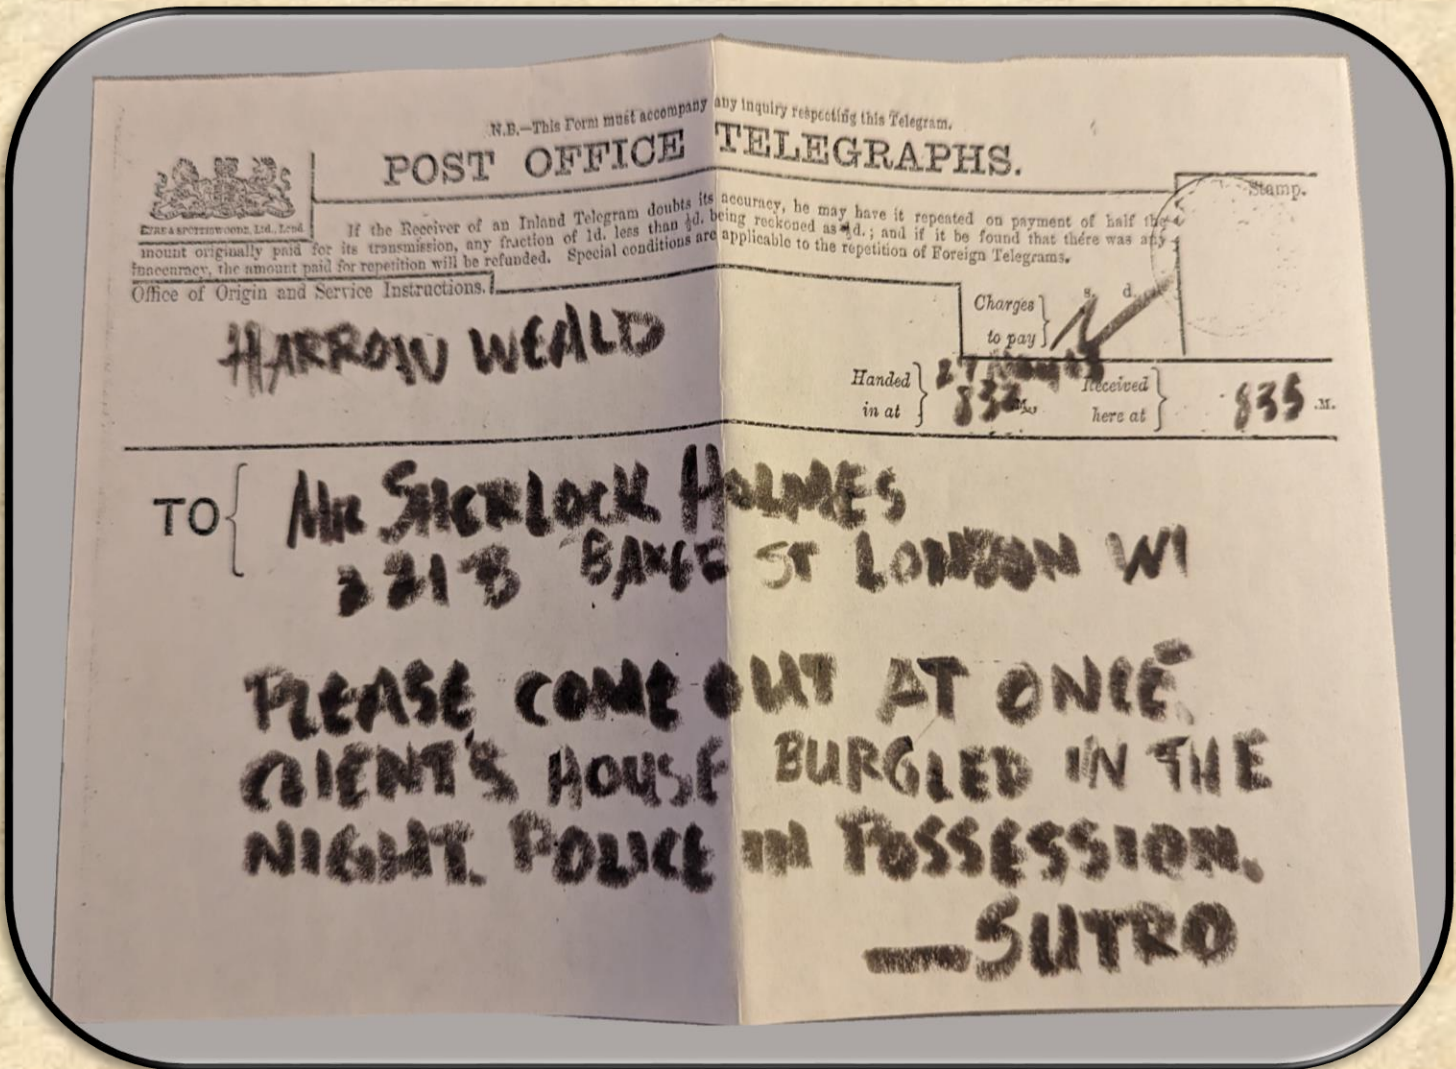 N.B.—This Form must accompany any inquiry respecting this Telegram.
POST OFFICE TELEGRAPHS.
Stamp.
EYRE & SPOTTISWOODE, Ltd., Lond.
If the Receiver of an Inland Telegram doubts its accuracy, he may have it repeated on payment of half the
mount originally paid for its transmission, any fraction of 1d. less than ½d. being reckoned as ½d.; and if it be found that there was any
inaccuracy, the amount paid for repetition will be refunded. Special conditions are applicable to the repetition of Foreign Telegrams.
Office of Origin and Service Instructions.
HARROW WEALD
Charges to pay
s. d.
Handed in at
832 M.
Received here at
835 .M.
TO
MR SHERLOCK HOLMES
221 B BAKE ST LONDON W1
PLEASE COME OUT AT ONCE
CLIENT'S HOUSE BURGLED IN THE
NIGHT. POLICE IN POSSESSION.
—SUTRO